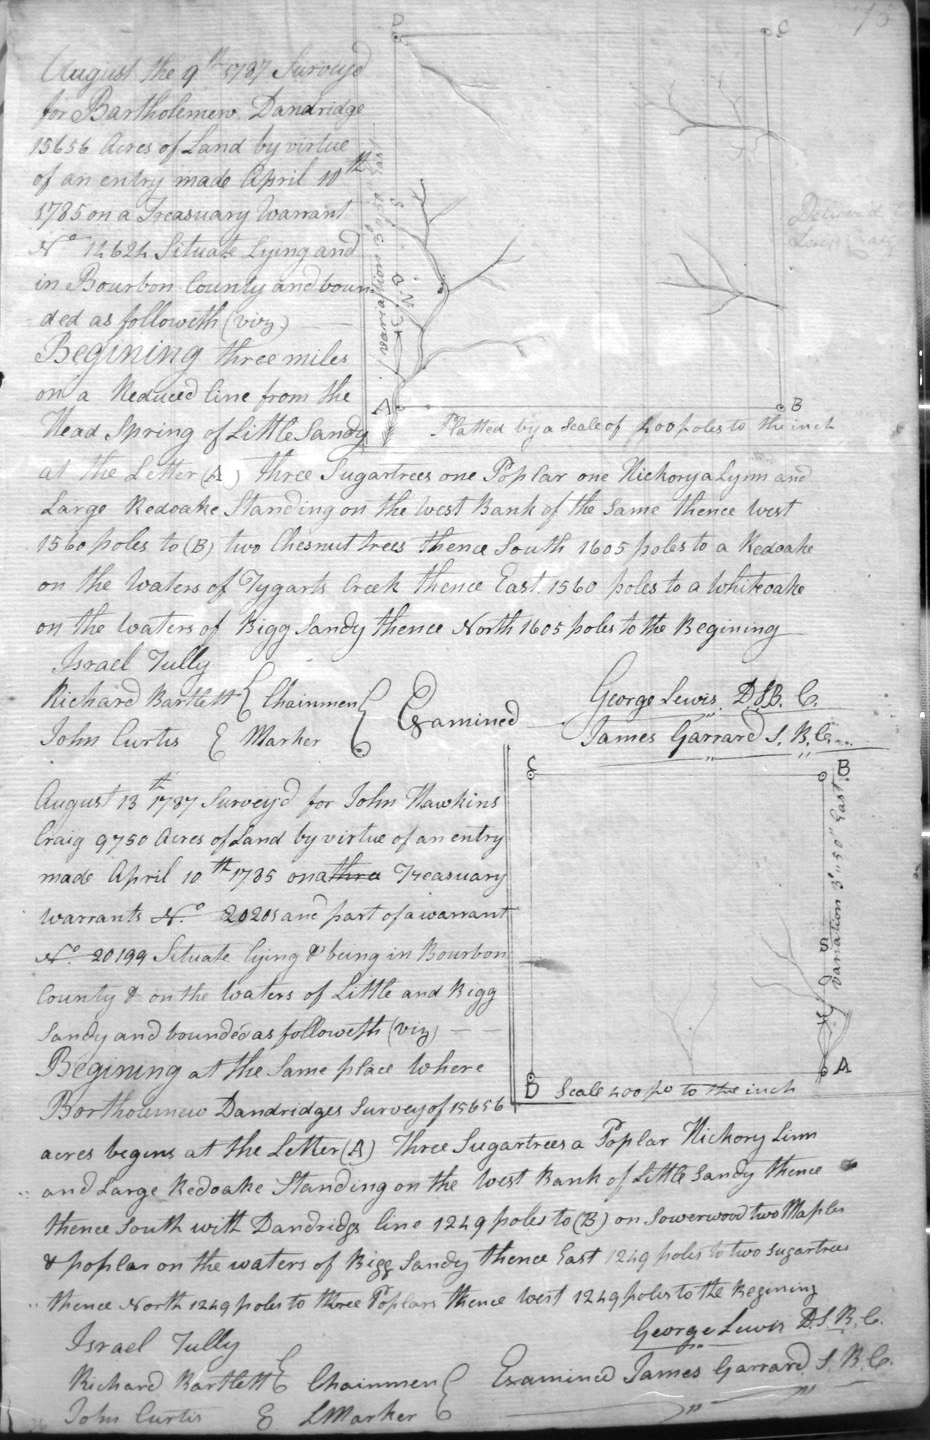 75
August the 9th 1787 Survey'd
for Bartholemew Dandridge
15656 Acres of Land by virtue
of an entry made April 10th
1785 on a Treasuary Warrant
No 14624 Situate Lying and
in Bourbon County and boun
ded as followeth (viz)
Begining three miles
on a Reduced line from the
Head Spring of Little Sandy
at the Letter (A) three Sugartrees one Poplar one Hickory a Lynn and
Large Redoake Standing on the West Bank of the Same thence West
1560 poles to (B) two Chesnut trees thence South 1605 poles to a Redoake
on the Waters of Tygarts Creek thence East 1560 poles to a Whiteoake
on the Waters of Bigg Sandy thence North 1605 poles to the Begining
Israel Tully
Richard Bartlett } Chainmen
John Curtis & Marker
Examined
George Lewis D.S.B.C.
James Garrard S.B.C.
D
C
variation 3° 50" East
S
N
A
B
Platted by a Scale of 400 poles to the inch
Deliver'd
August 13th 1787 Survey'd for John Hawkins
Craig 9750 Acres of Land by virtue of an entry
made April 10th 1785 on a thre Treasuary
Warrants No 20205 and part of a warrant
No 20199 Situate lying & being in Bourbon
County & on the Waters of Little and Bigg
Sandy and bounded as followeth (viz)
Begining at the Same place where
Bartholemew Dandridges Survey of 15656
acres begins at the Letter (A) Three Sugartrees a Poplar Hickory Linn
and Large Redoake Standing on the West Bank of Little Sandy thence
thence South with Dandridgs line 1249 poles to (B) on Sowerwood two Maples
& poplar on the waters of Bigg Sandy thence East 1249 poles to two Sugartrees
thence North 1249 poles to three Poplars thence West 1249 poles to the Begining
Israel Tully
Richard Bartlett & Chainmen
John Curtis & Marker
George Lewis D.S.B.C.
Examined James Garrard S.B.C.
C
B
variation 3° 50" East
S
N
D
A
Scale 400 po to the inch